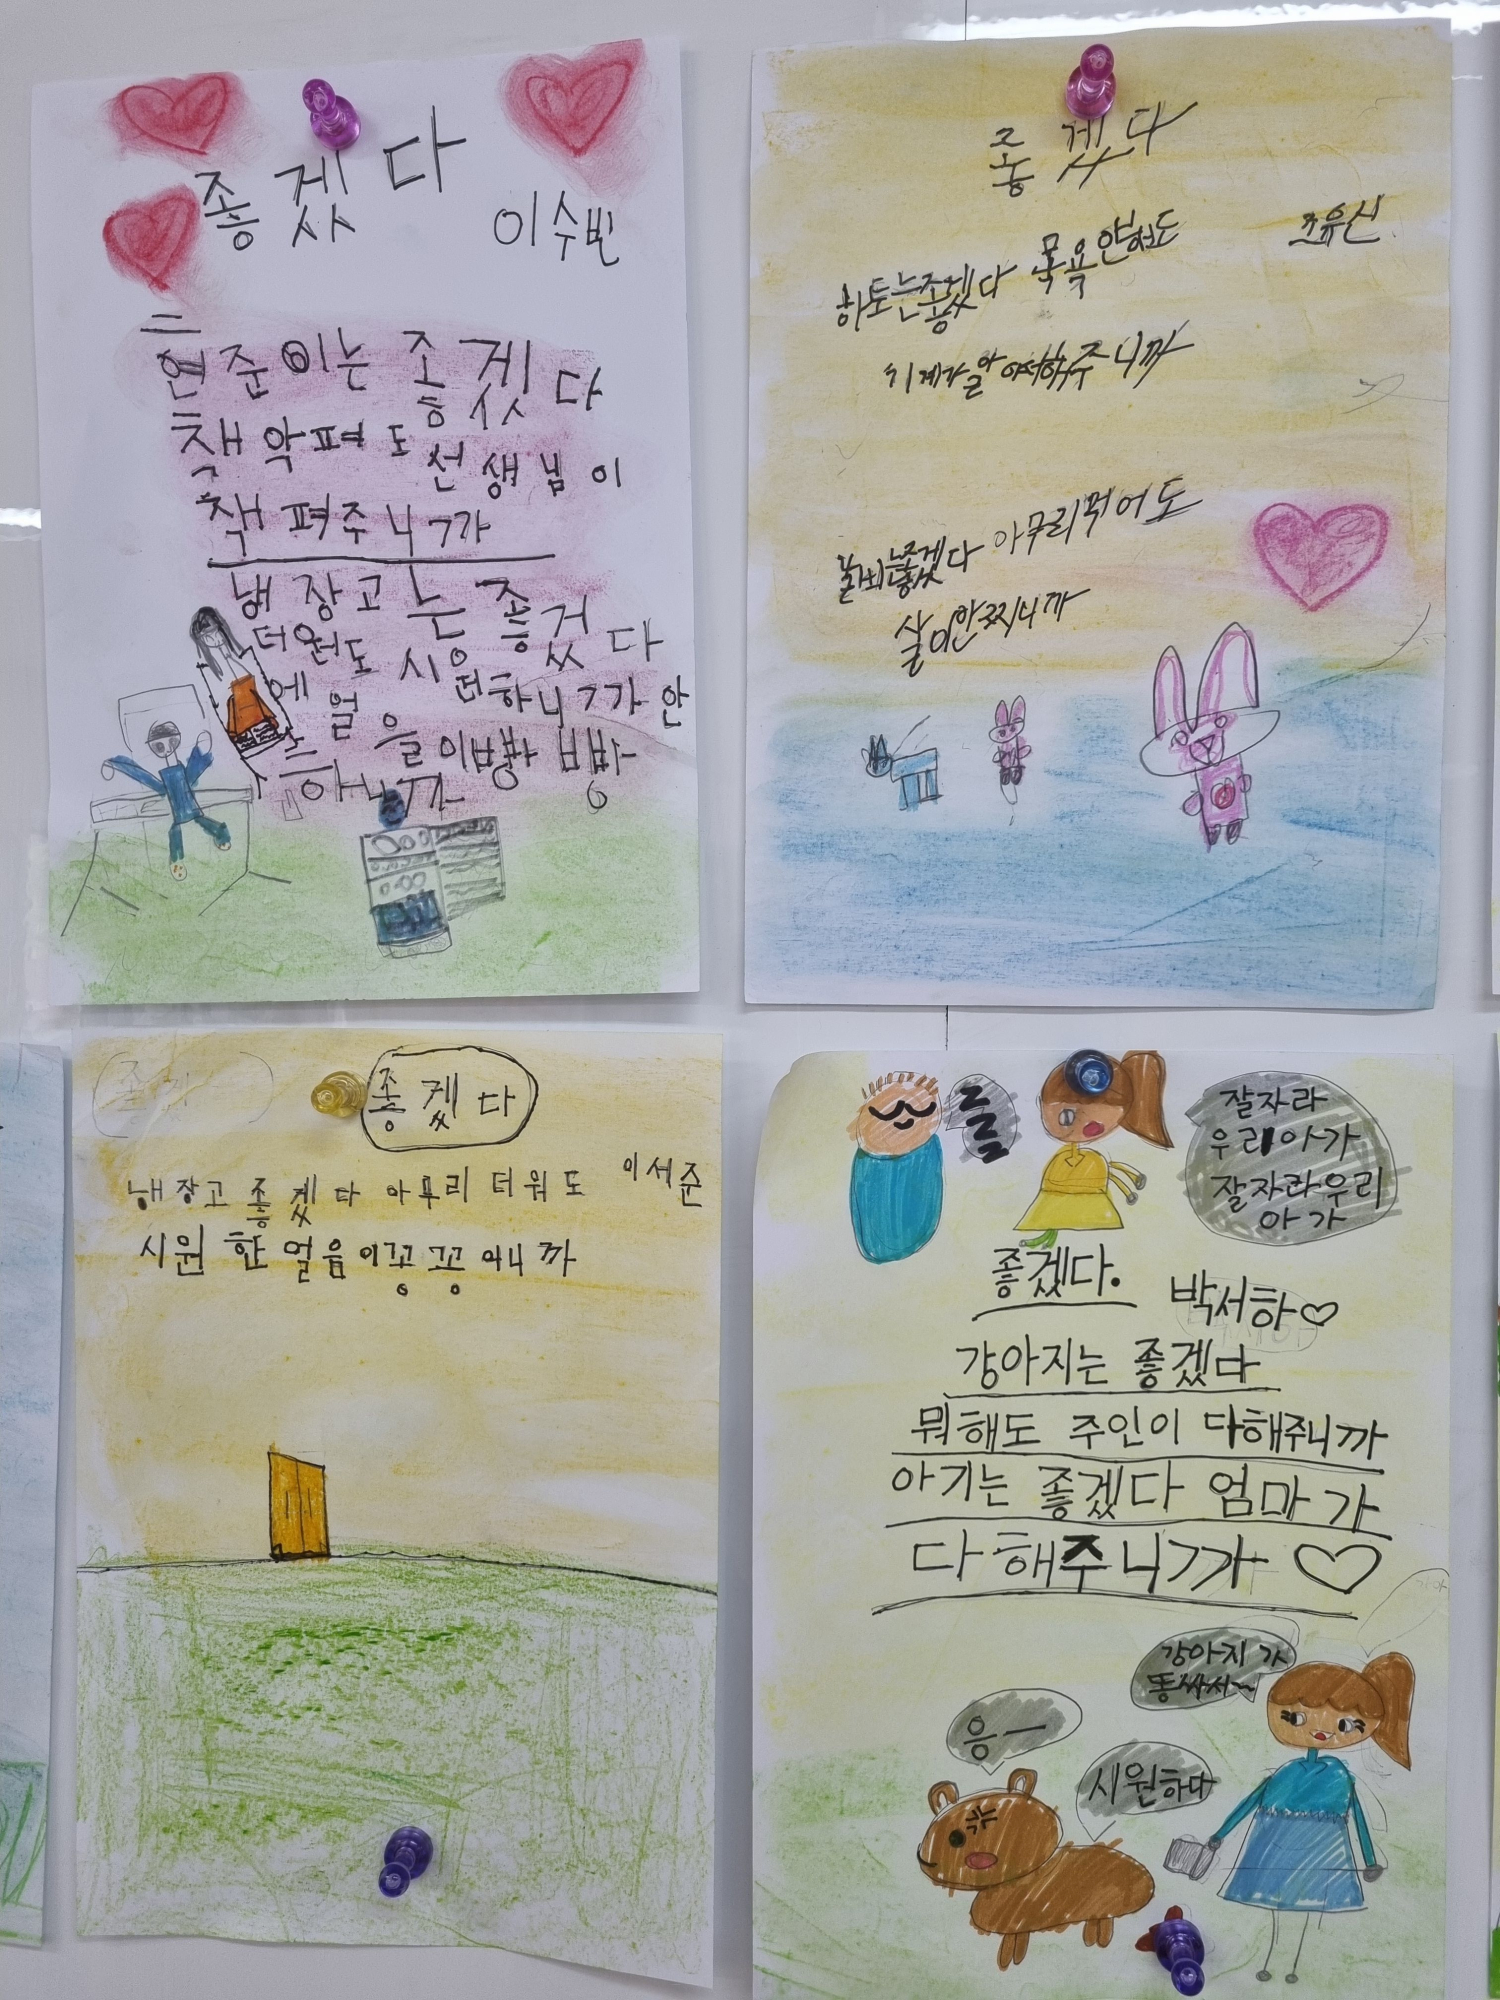 좋겠다
이수빈
현준이는 좋겠다
책 악펴도 선생님이
책 펴주니까
냉장고는 좋겠다
더워도 시원하니까 안
에 얼음이
하니까
좋겠다
조유신
하토는좋겠다 목욕안해도
기계가알아서해주니까
좋겠다 아무리먹어도
살이안찌니까
좋겠다
이세준
냉장고 좋겠다 아무리 더워도
시원한 얼음이꽁꽁아니까
잘자라
우리아가
잘자라우리
아가
좋겠다.
박서하♡
강아지는 좋겠다
뭐해도 주인이 다해주니까
아기는 좋겠다 엄마가
다해주니까 ♡
강아지가
똥싸서~
응ㅡ
시원하다